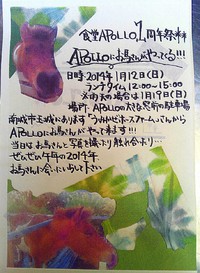 食堂APOLLO1周年祭
APOLLOにお馬さんがやってくる!!!
日時 2014年1月12日(日)
ランチタイム 12:00〜15:00
※雨天の場合は1月19日(日)
場所 APOLLOの大きな窓の前の駐車場
南城市玉城にあります「うみかぜホースファーム」さんから
APOLLOにお馬さんがやって来ます!!!
当日はお馬さんと写真を撮ったり触れ合ったり…
ぜひぜひ午年の2014年、
お馬さんに会いにいらして下さい